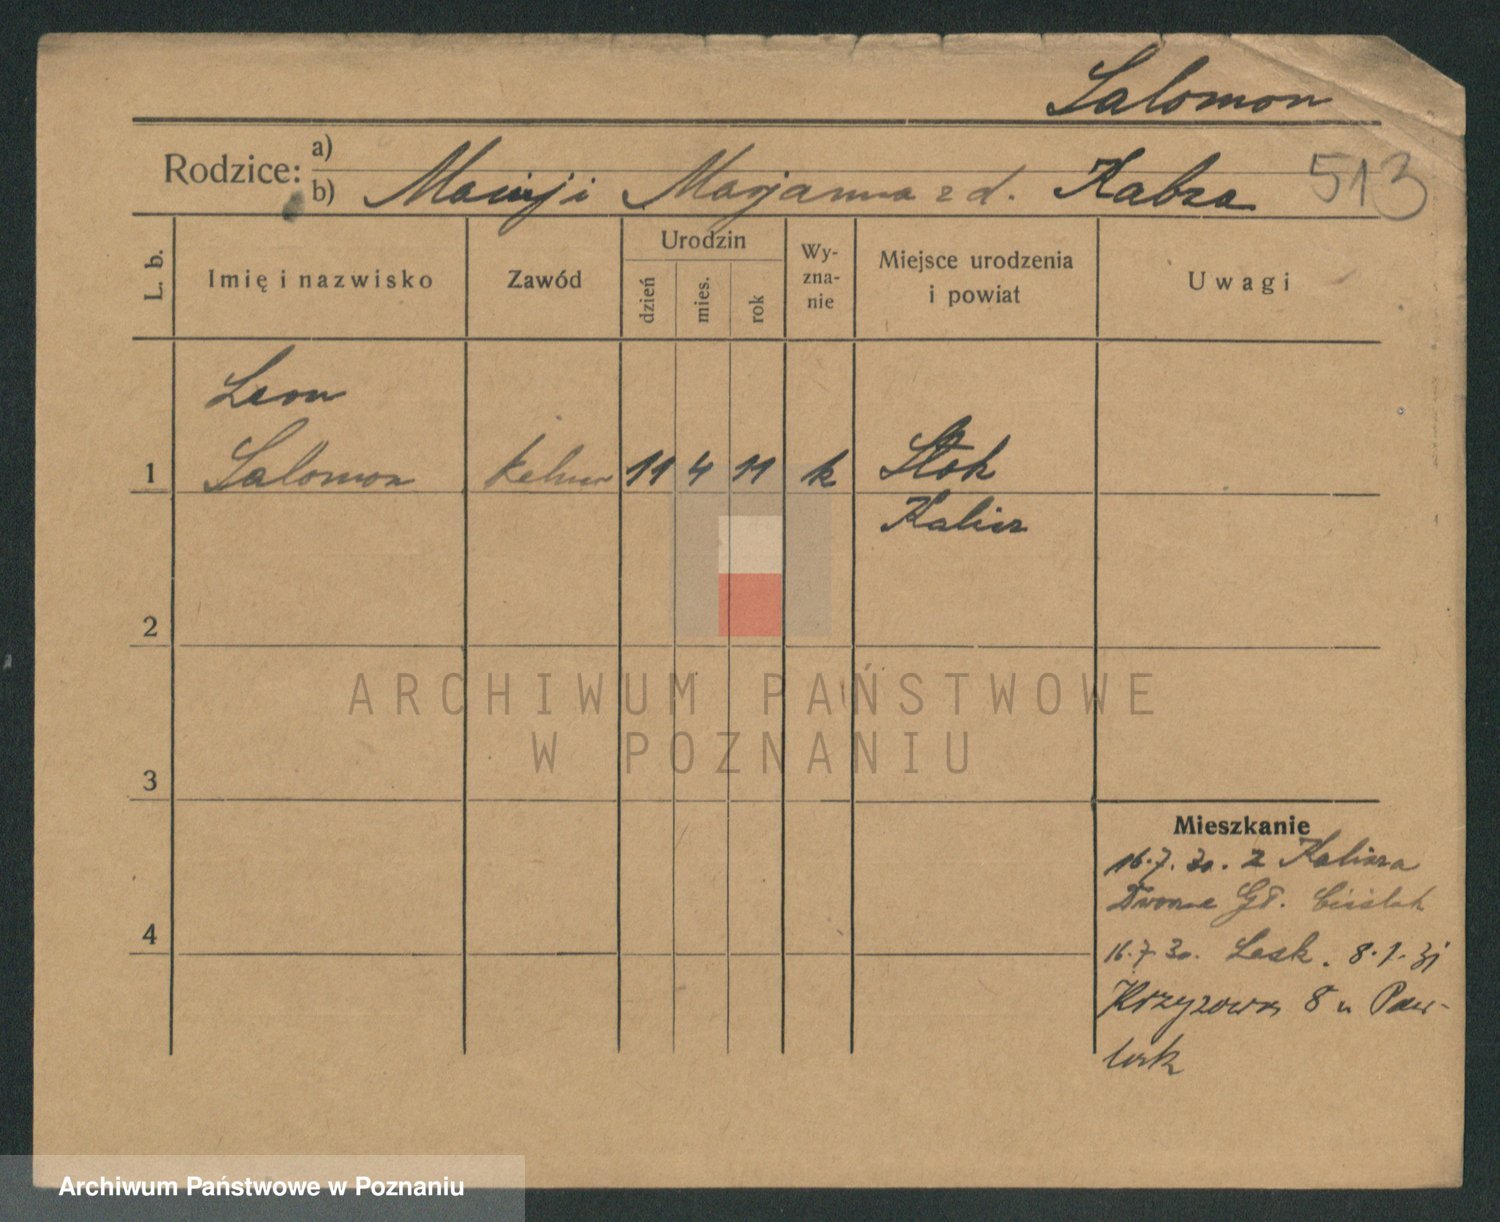 Salomon
Rodzice: a)
b) Maciej i Marjanna z d. Kabza 513
L. b.
Imię i nazwisko
Zawód
Urodzin
dzień
mies.
rok
Wy-
zna-
nie
Miejsce urodzenia
i powiat
Uwagi
Leon
1 Salomon kelner 11 4 11 k Stok
Kalisz
2
3
4
Mieszkanie
16.7.30. z Kalisza
Dworze Gł.
16.7.30. Lesk. 8.1.31
Krzyżowa 8 u Paw-
lak
ARCHIWUM PAŃSTWOWE
W POZNANIU
Archiwum Państwowe w Poznaniu